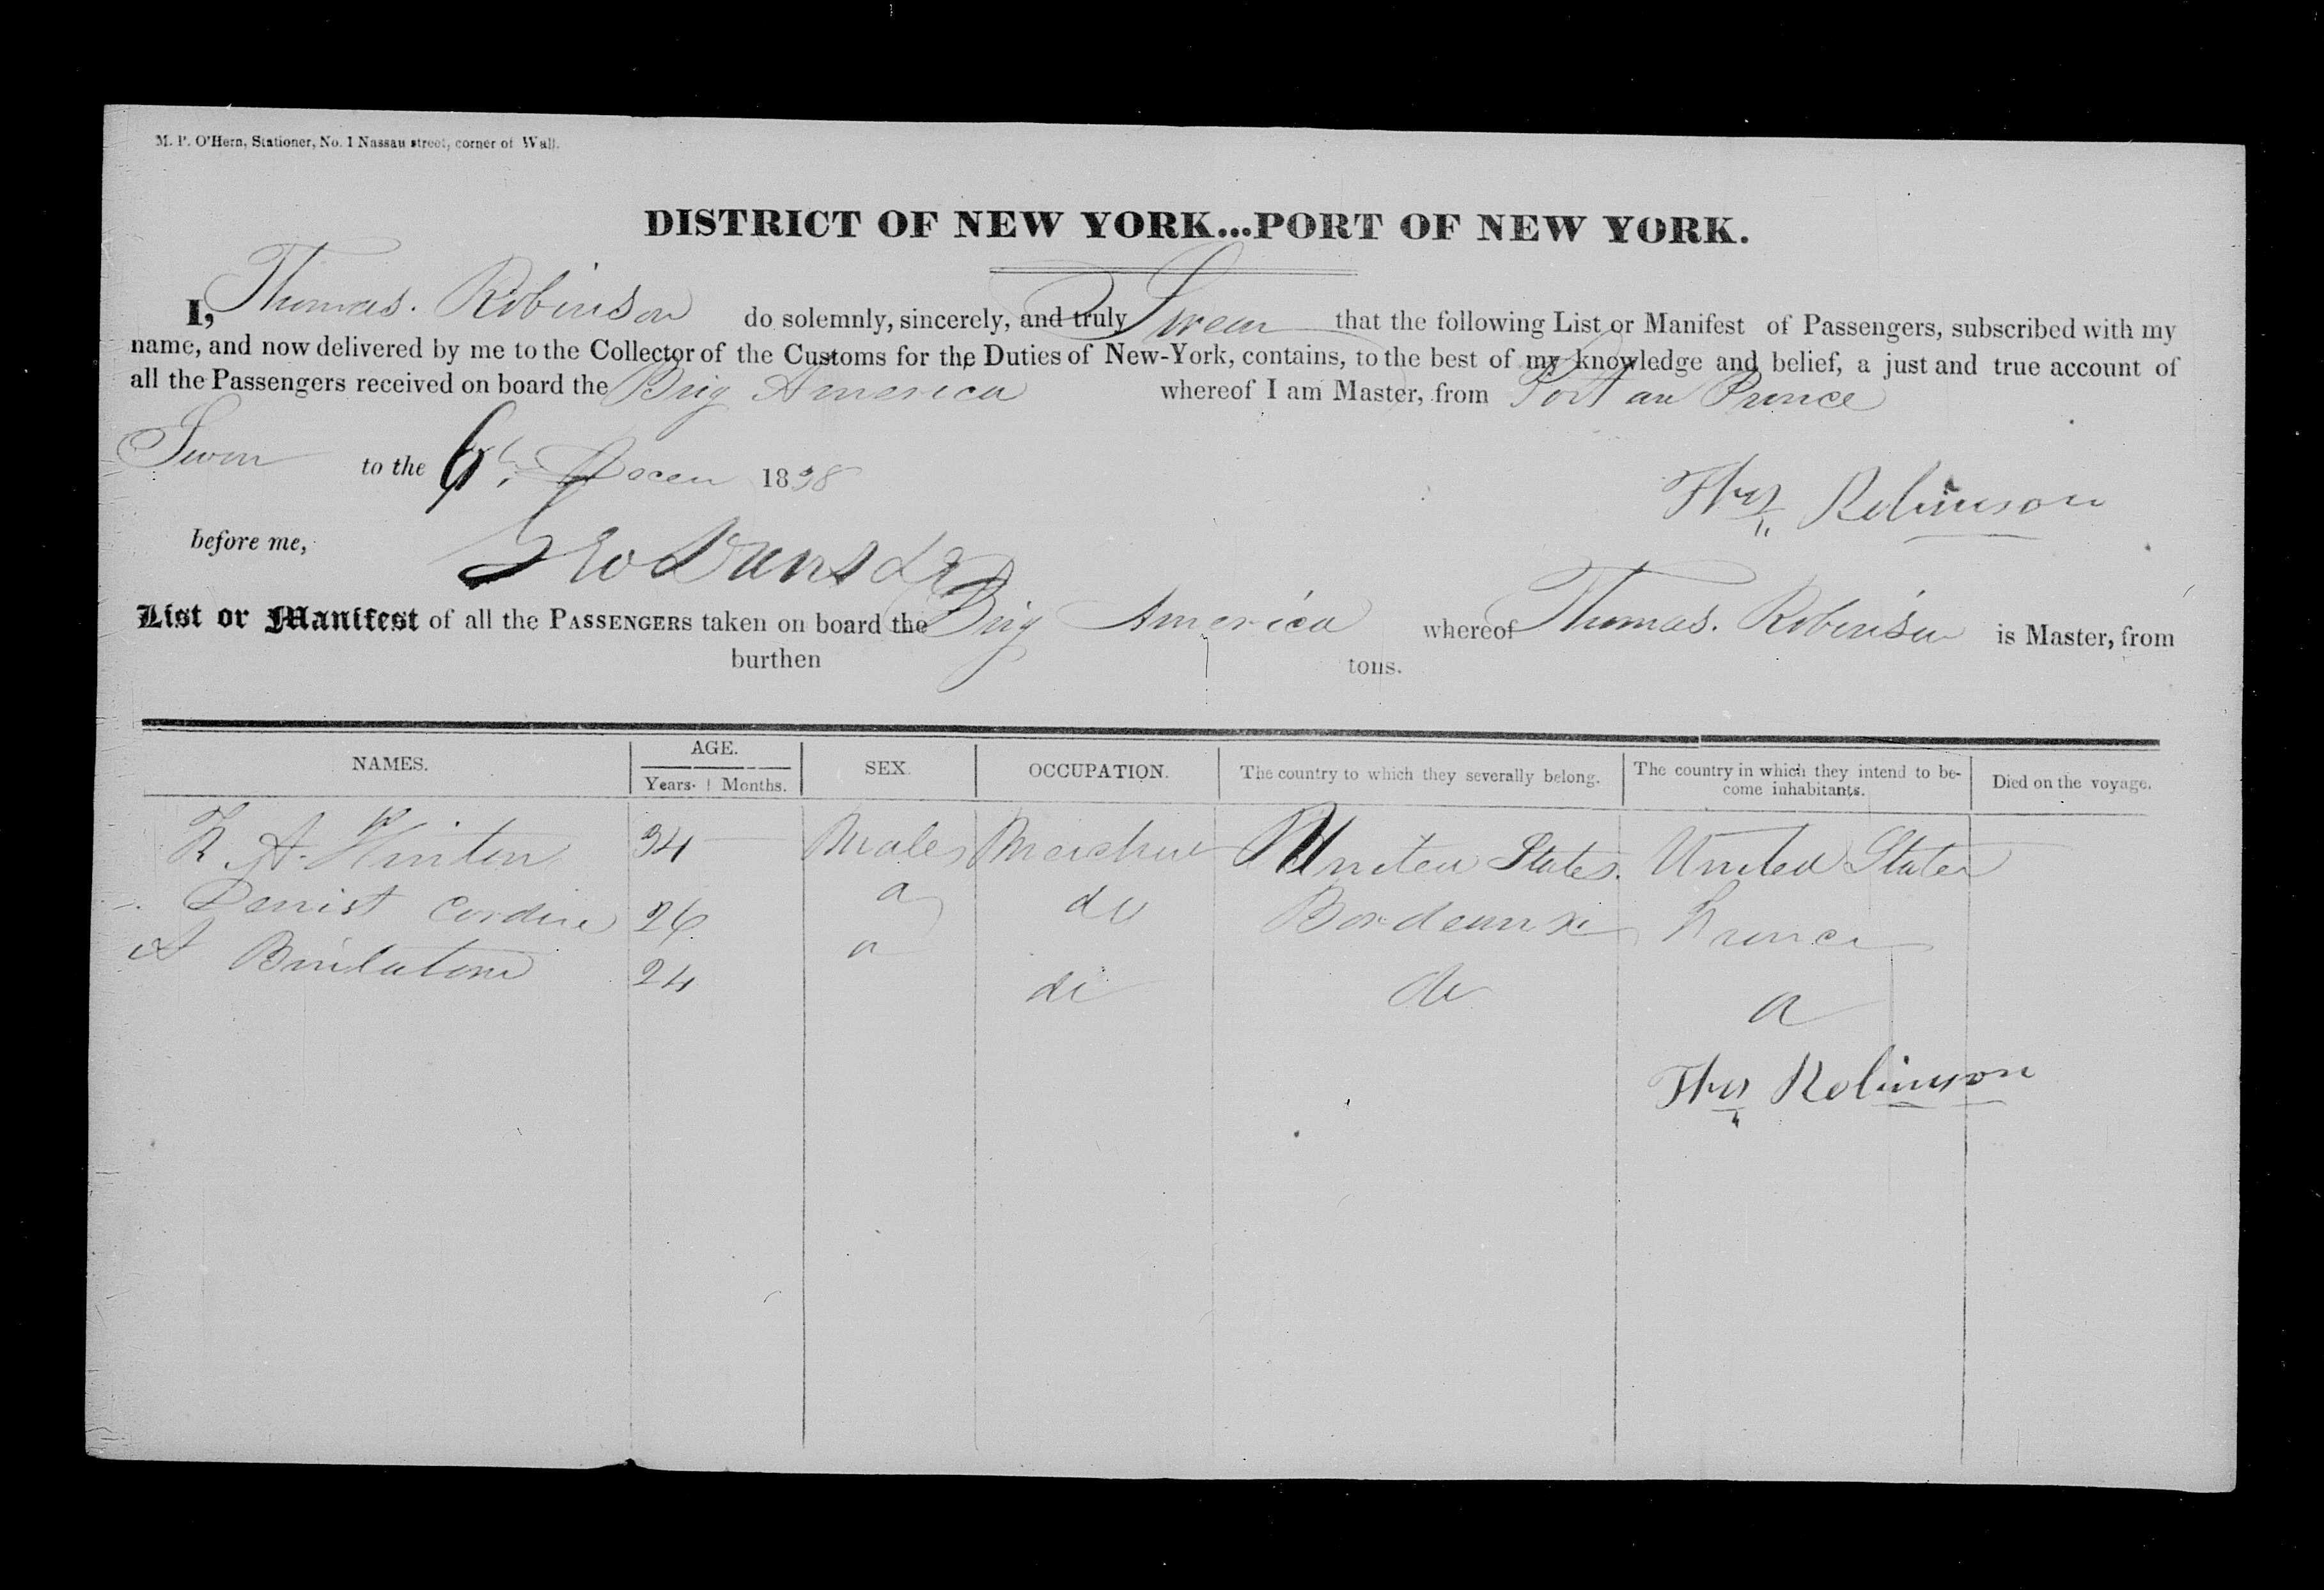 M. P. O'Hern, Stationer, No. 1 Nassau street, corner of Wall.
DISTRICT OF NEW YORK...PORT OF NEW YORK.
I, Thomas. Robinson do solemnly, sincerely, and truly Swear that the following List or Manifest of Passengers, subscribed with my
name, and now delivered by me to the Collector of the Customs for the Duties of New-York, contains, to the best of my knowledge and belief, a just and true account of
all the Passengers received on board the Brig America whereof I am Master, from Port au Prince
Sworn to the 6th Decem 1838
Thos Robinson
before me,
List or Manifest of all the PASSENGERS taken on board the Brig America whereof Thomas. Robinson is Master, from
burthen tons.
NAMES. AGE. SEX. OCCUPATION. The country to which they severally belong. The country in which they intend to be- Died on the voyage.
Years. Months. come inhabitants.
A. Hinton 34 Males United States. United States
Cordier 26 do Bordeaux France
24 do do
Thos Robinson